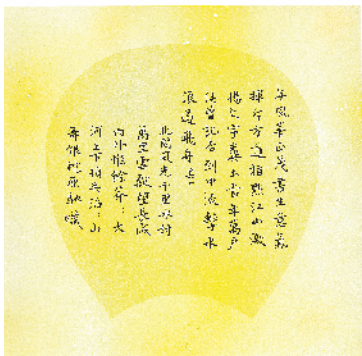 年風華正茂書生意氣
揮斥方遒指點江山激
揚文字糞土當年萬戶
侯曾記否到中流擊水
浪遏飛舟
北國風光千里冰封
萬里雪飄望長城
内外惟餘莽〻大
河上下頓失滔〻山
舞銀蛇原馳蠟